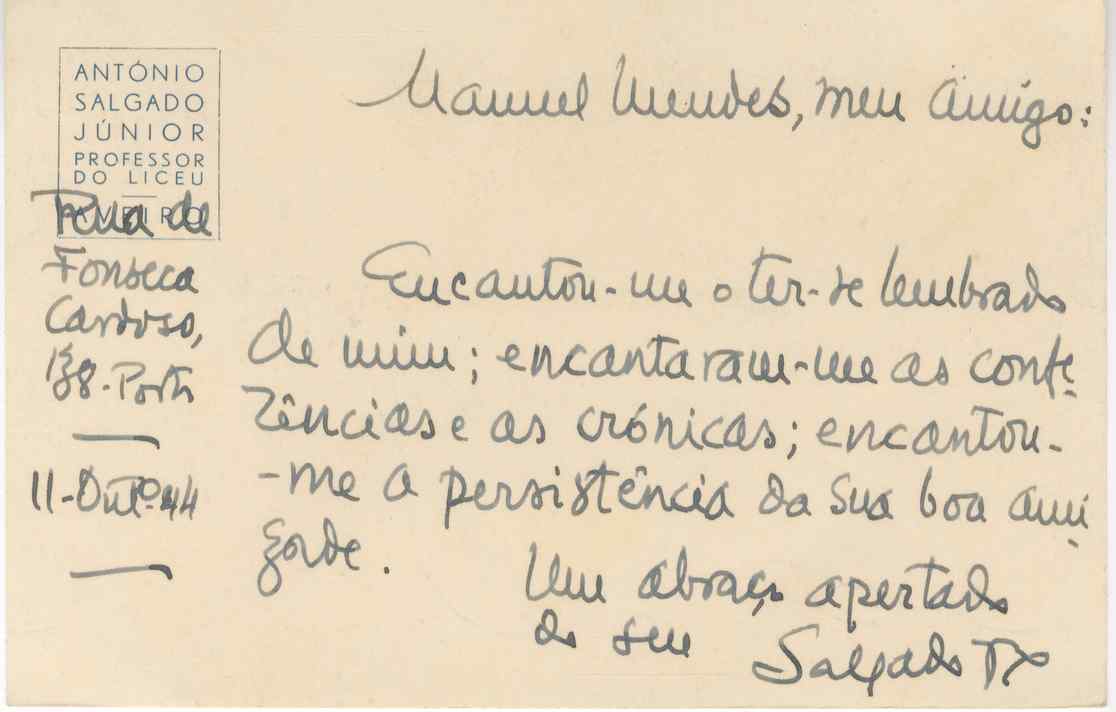 ANTÓNIO
SALGADO
JÚNIOR
PROFESSOR
DO LICEU
AVEIRO
Rua de
Fonseca
Cardoso,
138-Porto
11-Outº-44
Manuel Mendes, meu amigo:
Encantou-me o ter-se lembrado
de mim; encantaram-me as confe-
rências e as crónicas; encantou-
-me a persistência da sua boa ami-
zade.
Um abraço apertado
do seu
Salgado Jr